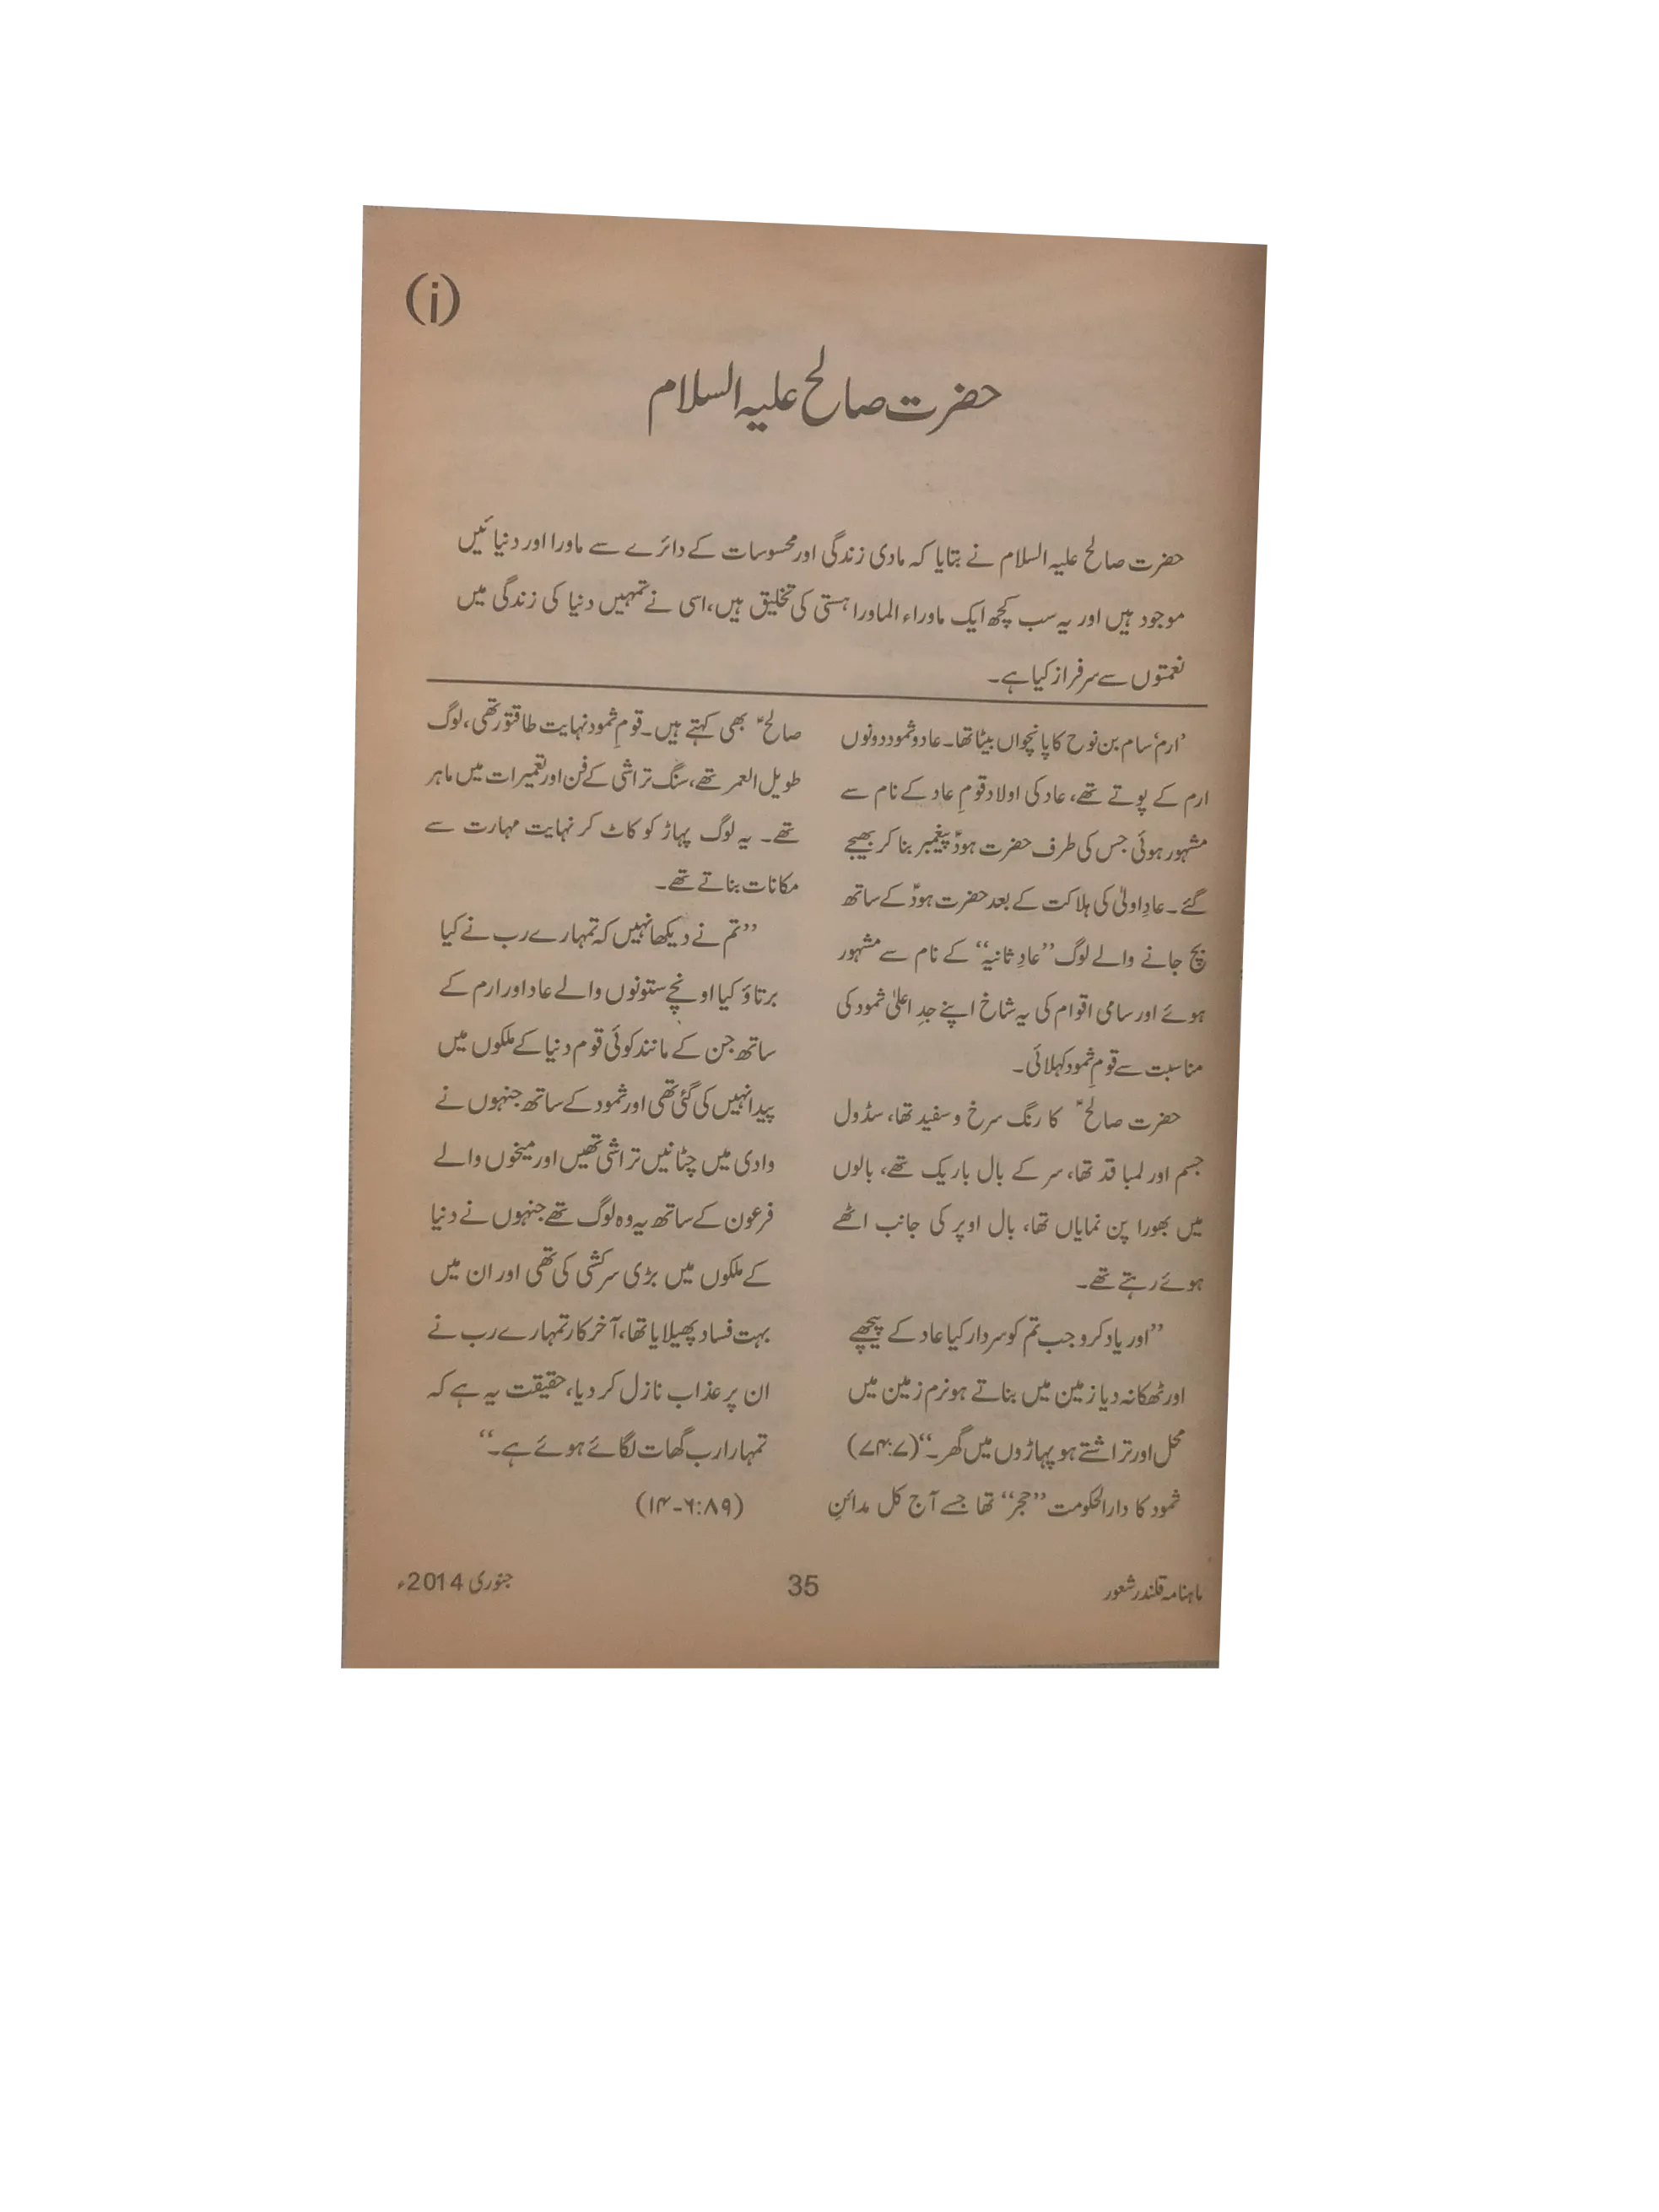 (i)
حضرت صالح علیہ السلام
حضرت صالح علیہ السلام نے بتایا کہ مادی زندگی اور محسوسات کے دائرے سے ماورا اور دنیائیں
موجود ہیں اور یہ سب کچھ ایک ماوراء الماورا ہستی کی تخلیق ہیں، اسی نے تمہیں دنیا کی زندگی میں
نعمتوں سے سرفراز کیا ہے۔
’ارم‘ سام بن نوح کا پانچواں بیٹا تھا۔ عاد و ثمود دونوں
ارم کے پوتے تھے، عاد کی اولاد قومِ عاد کے نام سے
مشہور ہوئی جس کی طرف حضرت ہودؑ پیغمبر بنا کر بھیجے
گئے۔ عادِ اولیٰ کی ہلاکت کے بعد حضرت ہودؑ کے ساتھ
بچ جانے والے لوگ ”عادِ ثانیہ“ کے نام سے مشہور
ہوئے اور سامی اقوام کی یہ شاخ اپنے جدِ اعلیٰ ثمود کی
مناسبت سے قومِ ثمود کہلائی۔
حضرت صالحؑ کا رنگ سرخ و سفید تھا، سڈول
جسم اور لمبا قد تھا، سر کے بال باریک تھے، بالوں
میں بھورا پن نمایاں تھا، بال اوپر کی جانب اٹھے
ہوئے رہتے تھے۔
”اور یاد کرو جب تم کو سردار کیا عاد کے پیچھے
اور ٹھکانہ دیا زمین میں بناتے ہو نرم زمین میں
محل اور تراشتے ہو پہاڑوں میں گھر۔“ (۷:۷۴)
ثمود کا دارالحکومت ”حجر“ تھا جسے آج کل مدائنِ
صالحؑ بھی کہتے ہیں۔ قومِ ثمود نہایت طاقتور تھی، لوگ
طویل العمر تھے، سنگ تراشی کے فن اور تعمیرات میں ماہر
تھے۔ یہ لوگ پہاڑ کو کاٹ کر نہایت مہارت سے
مکانات بناتے تھے۔
”تم نے دیکھا نہیں کہ تمہارے رب نے کیا
برتاؤ کیا اونچے ستونوں والے عاد اور ارم کے
ساتھ جن کے مانند کوئی قوم دنیا کے ملکوں میں
پیدا نہیں کی گئی تھی اور ثمود کے ساتھ جنہوں نے
وادی میں چٹانیں تراشی تھیں اور میخوں والے
فرعون کے ساتھ یہ وہ لوگ تھے جنہوں نے دنیا
کے ملکوں میں بڑی سرکشی کی تھی اور ان میں
بہت فساد پھیلایا تھا، آخر کار تمہارے رب نے
ان پر عذاب نازل کر دیا، حقیقت یہ ہے کہ
تمہارا رب گھات لگائے ہوئے ہے۔“
(۸۹:۶-۱۴)
ماہنامہ قلندر شعور
35
جنوری 2014ء